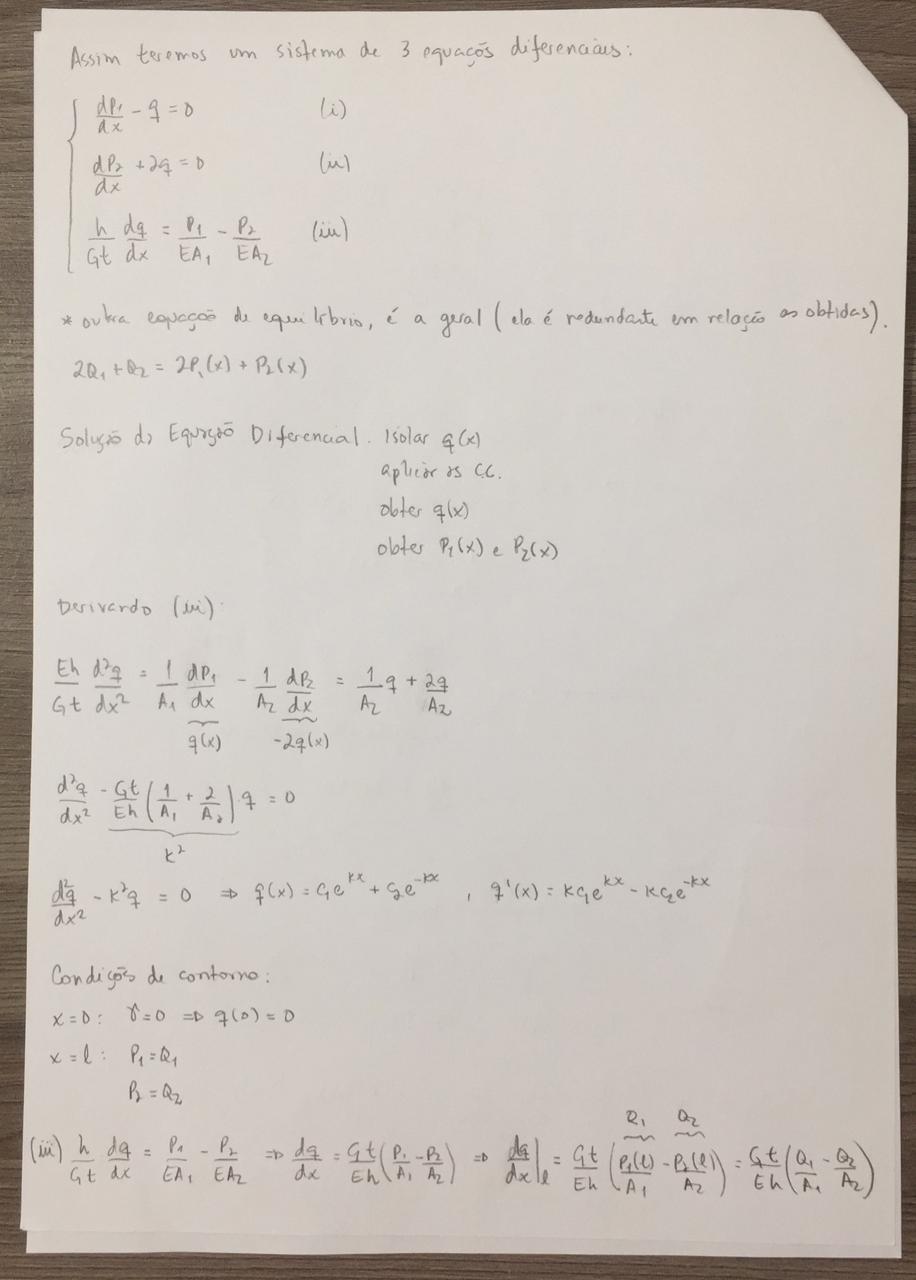 Assim teremos um sistema de 3 equações diferenciais:
dP₁/dx - q = 0 (i)
dP₂/dx + 2q = 0 (ii)
h/Gt dq/dx = P₁/EA₁ - P₂/EA₂ (iii)
* outra equação de equilíbrio, é a geral (ela é redundante em relação as obtidas).
2Q₁ + Q₂ = 2P₁(x) + P₂(x)
Solução da Equação Diferencial. Isolar q(x)
aplicar as C.C.
obter q(x)
obter P₁(x) e P₂(x)
Derivando (iii):
Eh/Gt d²q/dx² = 1/A₁ dP₁/dx - 1/A₂ dP₂/dx = 1/A₂ q + 2q/A₂
q(x) -2q(x)
d²q/dx² - Gt/Eh (1/A₁ + 2/A₂) q = 0
K²
d²q/dx² - K²q = 0 ⇒ q(x) = C₁e^kx + C₂e^-kx , q'(x) = KC₁e^kx - KC₂e^-kx
Condições de contorno:
x = 0: γ = 0 ⇒ q(0) = 0
x = l: P₁ = Q₁
P₂ = Q₂
Q₁ Q₂
(iii) h/Gt dq/dx = P₁/EA₁ - P₂/EA₂ ⇒ dq/dx = Gt/Eh (P₁/A₁ - P₂/A₂) ⇒ dq/dx|l = Gt/Eh (P₁(l)/A₁ - P₂(l)/A₂) = Gt/Eh (Q₁/A₁ - Q₂/A₂)